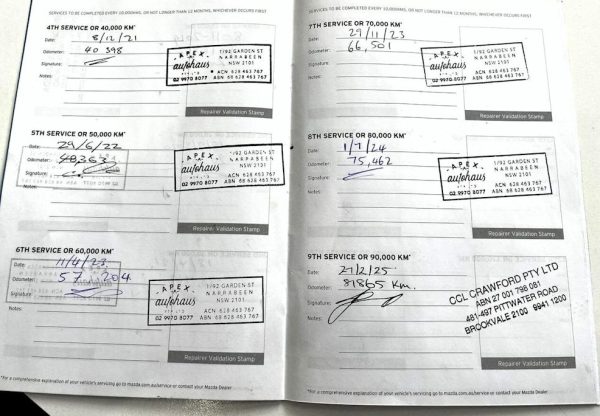 SERVICES TO BE COMPLETED EVERY 10,000KMS, OR NOT LONGER THAN 12 MONTHS, WHICHEVER OCCURS FIRST
4TH SERVICE OR 40,000 KM*
Date: 8/12/21
Odometer: 40 398
Signature:
Notes:
APEX
autohaus
PTY LTD
02 9970 8077
1/92 GARDEN ST
NARRABEEN
NSW 2101
ACN 628 463 767
ABN 68 628 463 767
Repairer Validation Stamp
5TH SERVICE OR 50,000 KM*
Date: 29/6/22
Odometer: 48,363
Signature:
Notes:
APEX
autohaus
PTY LTD
02 9970 8077
1/92 GARDEN ST
NARRABEEN
NSW 2101
ACN 628 463 767
ABN 68 628 463 767
Repairer Validation Stamp
6TH SERVICE OR 60,000 KM*
Date: 11/4/23
Odometer: 57,204
Signature:
Notes:
APEX
autohaus
PTY LTD
02 9970 8077
1/92 GARDEN ST
NARRABEEN
NSW 2101
ACN 628 463 767
ABN 68 628 463 767
Repairer Validation Stamp
*For a comprehensive explanation of your vehicle's servicing go to mazda.com.au/service or contact your Mazda Dealer
SERVICES TO BE COMPLETED EVERY 10,000KMS, OR NOT LONGER THAN 12 MONTHS, WHICHEVER OCCURS FIRST
7TH SERVICE OR 70,000 KM*
Date: 29/11/23
Odometer: 66,501
Signature:
Notes:
APEX
autohaus
PTY LTD
02 9970 8077
1/92 GARDEN ST
NARRABEEN
NSW 2101
ACN 628 463 767
ABN 68 628 463 767
Repairer Validation Stamp
8TH SERVICE OR 80,000 KM*
Date: 1/7/24
Odometer: 75,462
Signature:
Notes:
APEX
autohaus
PTY LTD
02 9970 8077
1/92 GARDEN ST
NARRABEEN
NSW 2101
ACN 628 463 767
ABN 68 628 463 767
Repairer Validation Stamp
9TH SERVICE OR 90,000 KM*
Date: 21/2/25
Odometer: 81865 Km.
Signature:
Notes:
CCL CRAWFORD PTY LTD
ABN 27 001 798 081
481-497 PITTWATER ROAD
BROOKVALE 2100 9941 1200
Repairer Validation Stamp
*For a comprehensive explanation of your vehicle's servicing go to mazda.com.au/service or contact your Mazda Dealer